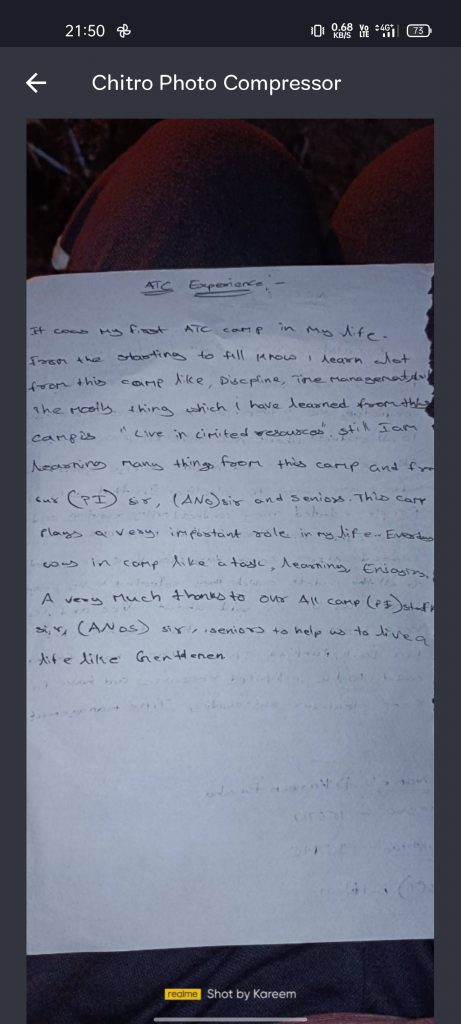 21:50
0.68 KB/S
Vo LTE
4G+
73
Chitro Photo Compressor
ATC Experience:-
It was My first ATC camp in My life.
From the starting to till know i learn alot
from this camp like, Discpline, Time Management,
The mostly thing which i have learned from this
camp is "Live in limited resources". still I am
learning many things from this camp and from
our (PI) sir, (ANO) sir and seniors. This camp
plays a very important role in my life. Everyday
was in camp like a task, learning, Enjoying.
A very Much thanks to our All camp (PI) staff
sir, (ANOs) sir, seniors to help us to live a
life like Gentlemen
realme Shot by Kareem